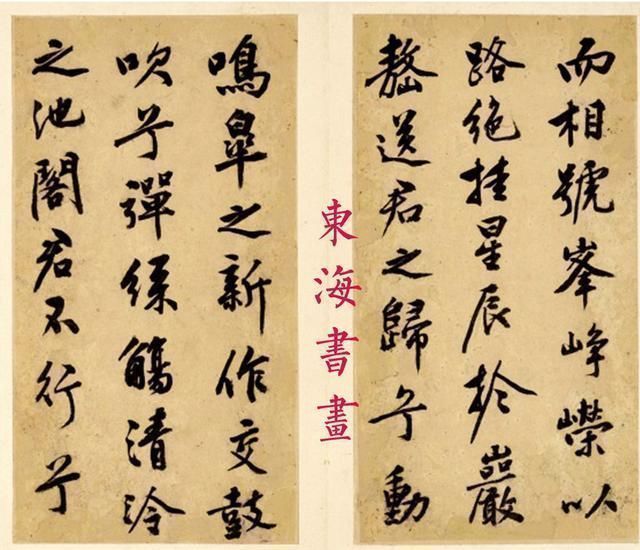 而相號峯崢嶸以
路絕挂星辰於巖
嶅送君之歸兮動
東海書畫
鳴皐之新作交鼓
吹兮彈絲觴清泠
之池閣君不行兮